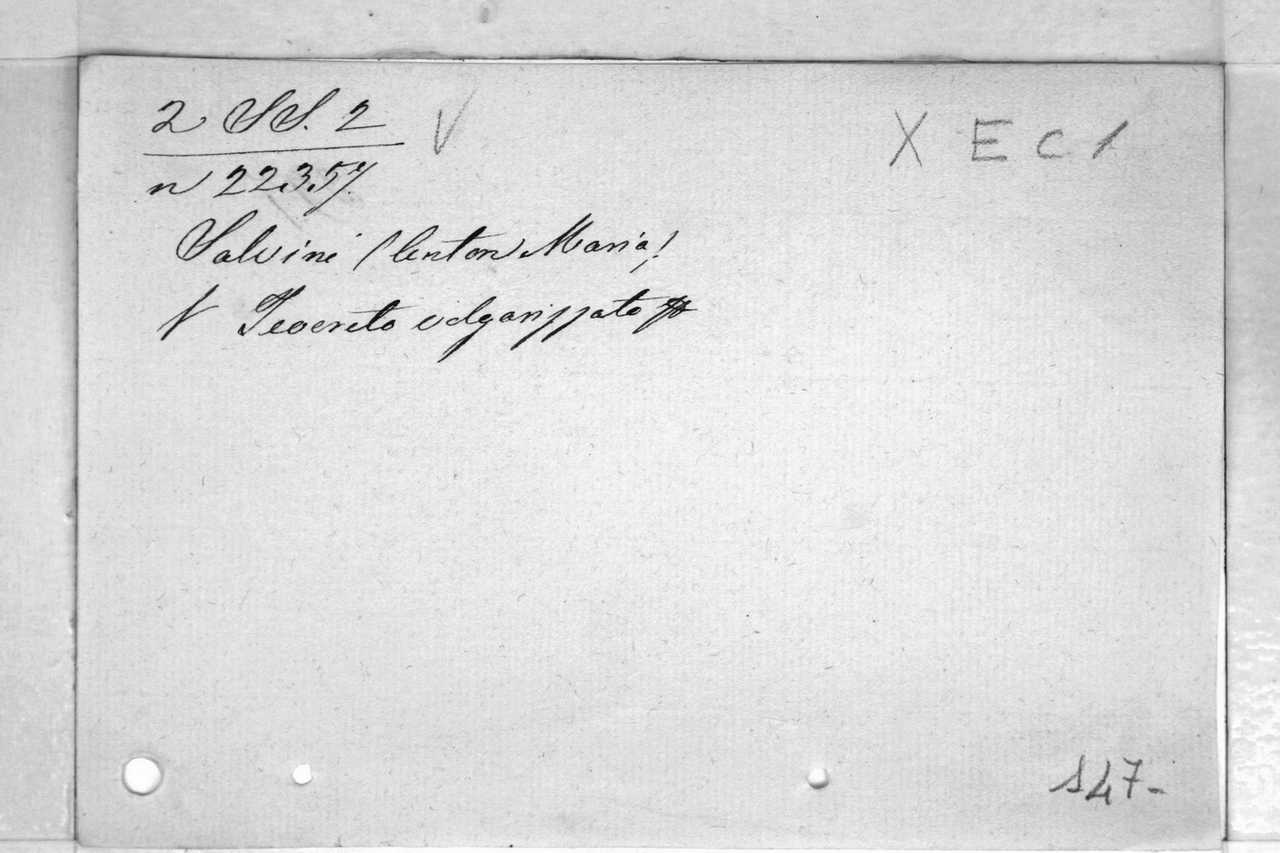 2 SS. 2 V X E C 1
n 22.3.57.
Salvini (Anton Maria)
Teocrito volgarizzato
147-